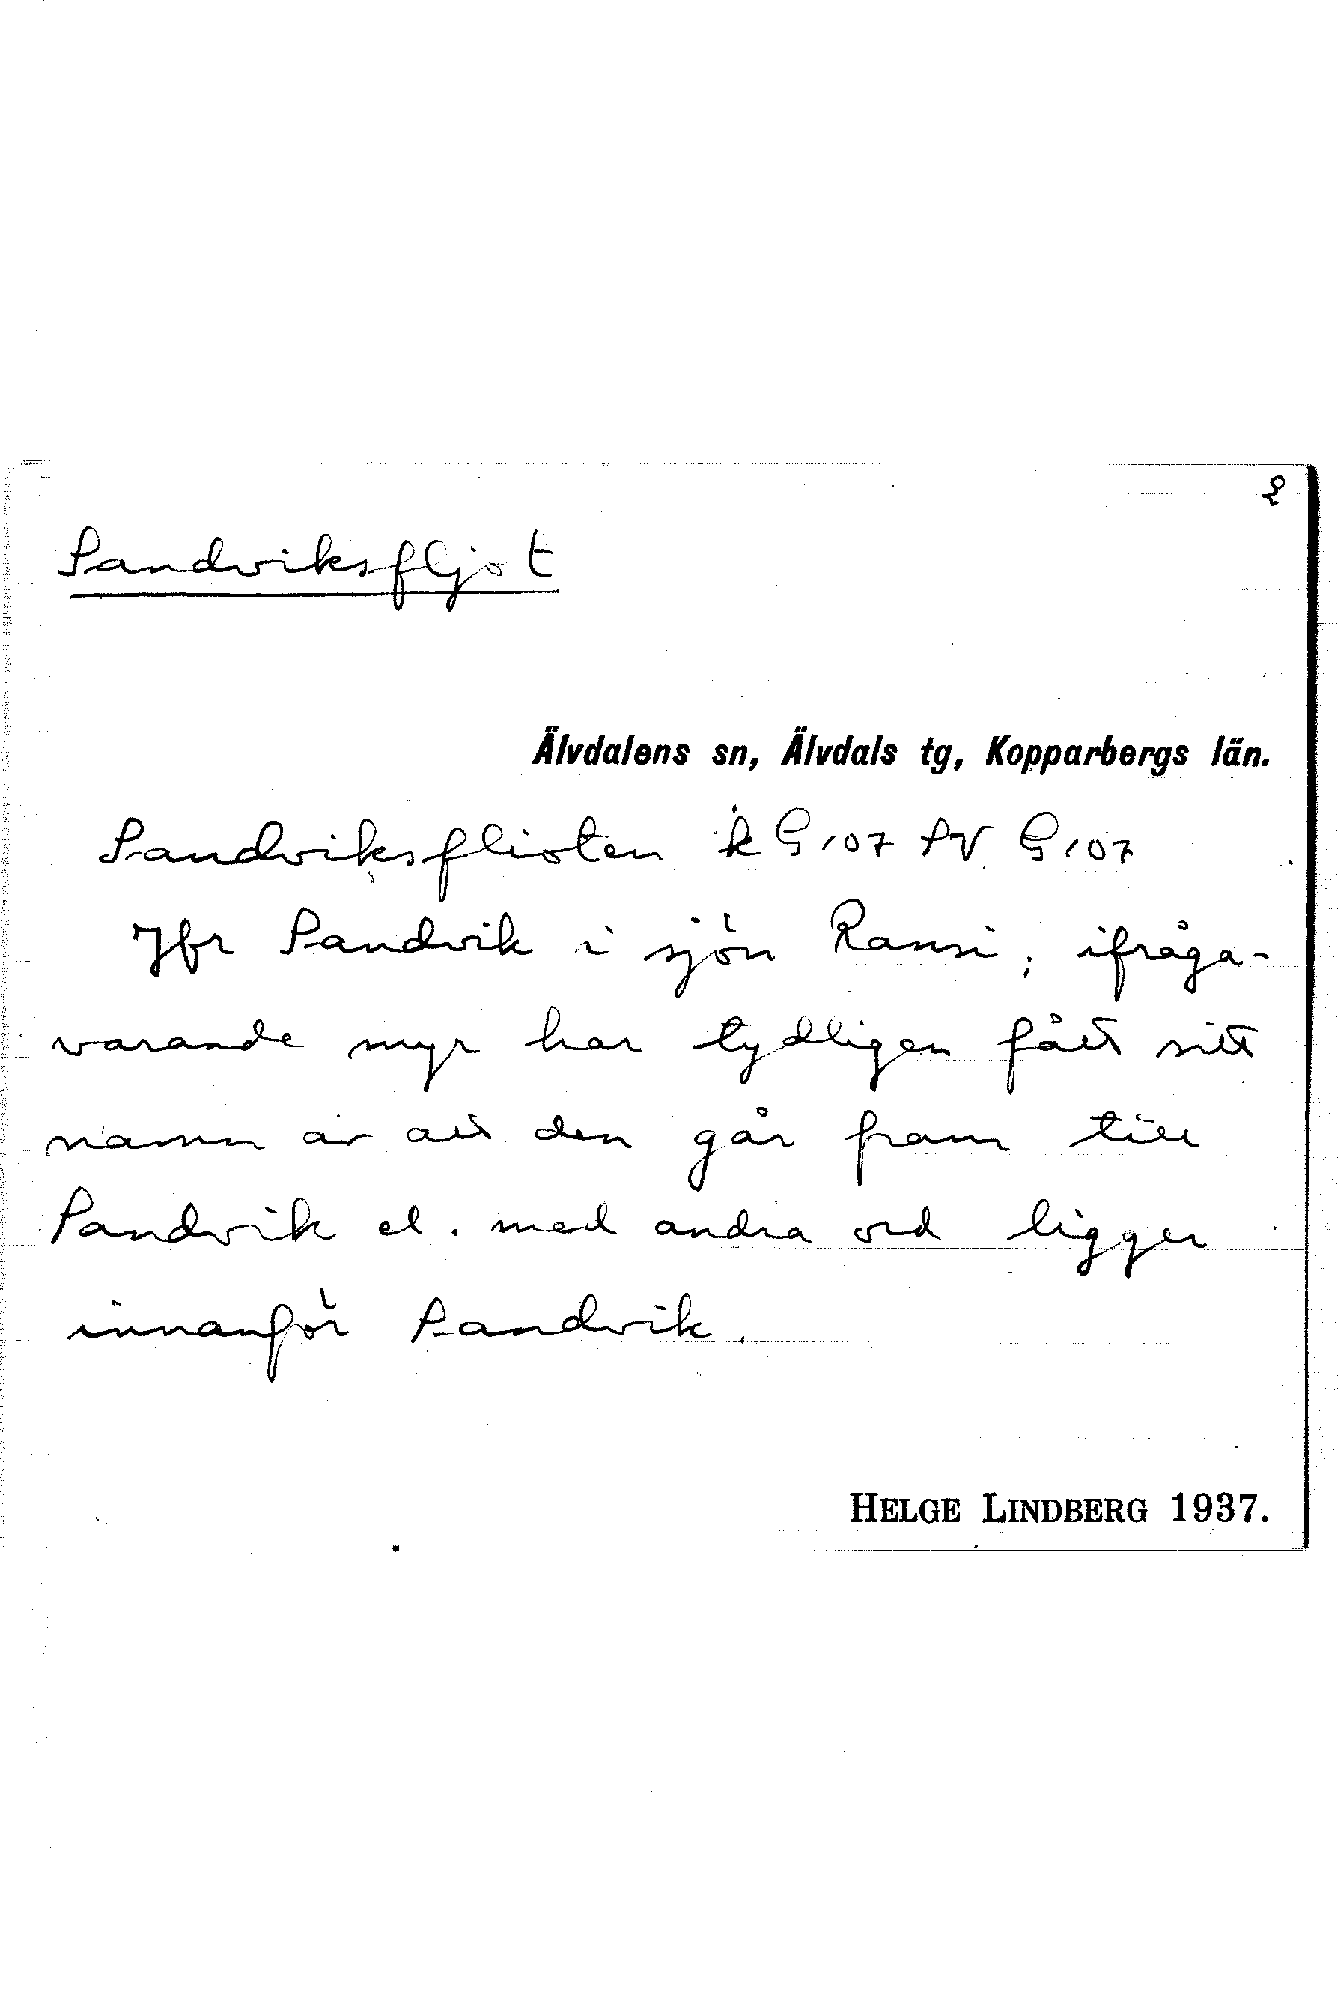 2
Sandviksfljot
Älvdalens sn, Älvdals tg, Kopparbergs län.
Sandviksflioten k G 107 SV G 107
Jfr Sandvik i sjön Ransi; ifråga-
varande myr har tydligen fått sitt
namn av att den går fram till
Sandvik el. med andra ord ligger
innanför Sandvik.
HELGE LINDBERG 1937.